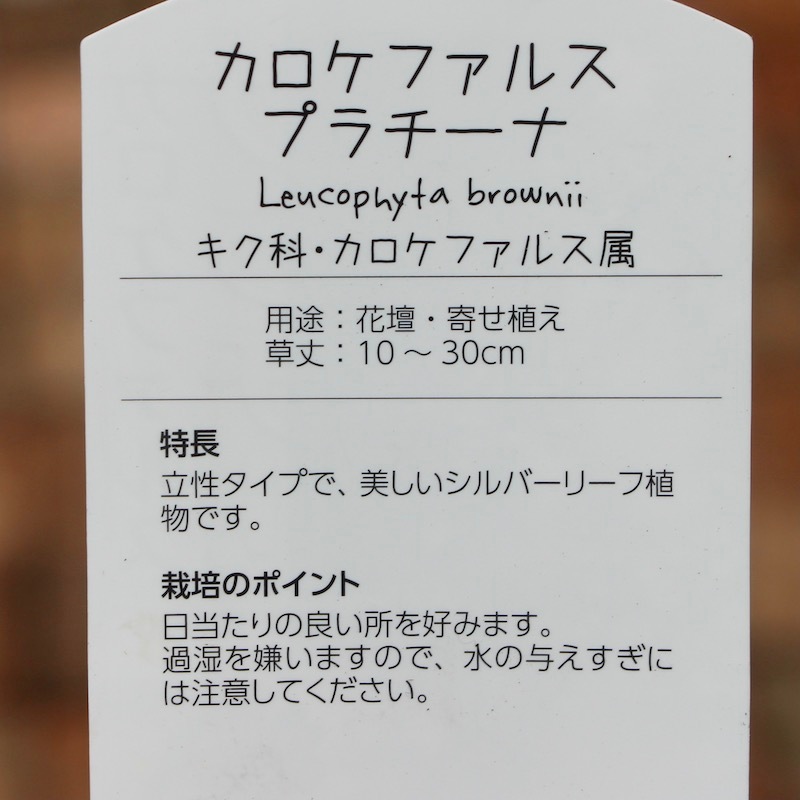 カロケファルス
プラチーナ
Leucophyta brownii
キク科・カロケファルス属
用途：花壇・寄せ植え
草丈：10～30cm
特長
立性タイプで、美しいシルバーリーフ植
物です。
栽培のポイント
日当たりの良い所を好みます。
過湿を嫌いますので、水の与えすぎに
は注意してください。